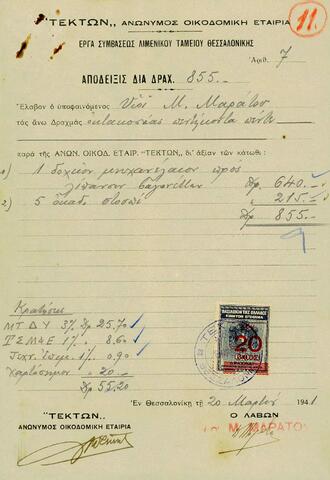 "ΤΕΚΤΩΝ,, ΑΝΩΝΥΜΟΣ ΟΙΚΟΔΟΜΙΚΗ ΕΤΑΙΡΙΑ
11.
ΕΡΓΑ ΣΥΜΒΑΣΕΩΣ ΛΙΜΕΝΙΚΟΥ ΤΑΜΕΙΟΥ ΘΕΣΣΑΛΟΝΙΚΗΣ
Ἀριθ. 7
ΑΠΟΔΕΙΞΙΣ ΔΙΑ ΔΡΑΧ. 855.-
Ἔλαβον ὁ ὑποφαινόμενος Υἱοὶ Μ. Μαράτου
τὰς ἄνω Δραχμὰς ὀκτακοσίας πεντήκοντα πέντε
παρὰ τῆς ΑΝΩΝ. ΟΙΚΟΔ. ΕΤΑΙΡ. "ΤΕΚΤΩΝ,, δι' ἀξίαν τῶν κάτωθι :
1) 1 δοχεῖον μηχανέλαιον πρὸς
λίπανσιν βαγονέττων Δρ. 640.-
2) 5 ὀκάδ. στουπί " 215.-
Δρ. 855.-
Κρατήσεις
ΜΤΔΥ 3% Δρ. 25.70
ΤΣΜΕ 1% " 8.60
" 0.90
Χαρτόσημον " 20.-
Δρ 55.20
ΒΑΣΙΛΕΙΟΝ ΤΗΣ ΕΛΛΑΔΟΣ
20
ΔΡΑΧΜΑΙ
Ἐν Θεσσαλονίκῃ τῇ 20 Μαρτίου 1941
"ΤΕΚΤΩΝ,,
ΑΝΩΝΥΜΟΣ ΟΙΚΟΔΟΜΙΚΗ ΕΤΑΙΡΙΑ
Ο ΛΑΒΩΝ
Μ. ΜΑΡΑΤΟ